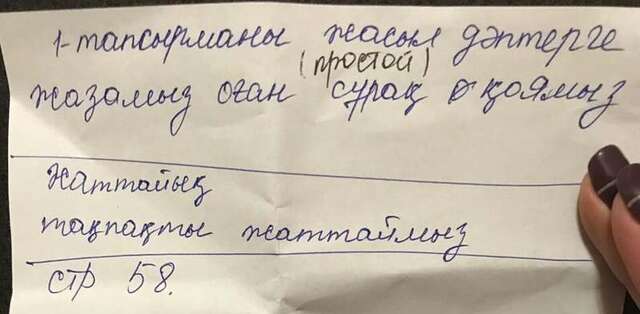 1-тапсырманы жасыл дәптерге
(простой)
жазамыз оған сұрақ қоямыз
Жаттайық
тақпақты жаттаймыз
стр 58.